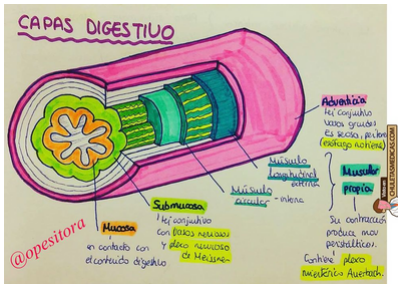 CAPAS DIGESTIVO
Adventicia
Tej conjuntivo
vasos grandes
es serosa, peritoneo
(esófago no tiene)
Músculo
longitudinal
externa
Músculo
circular - interna
Muscular
propia
Su contracción
produce mov
peristálticos.
Contiene plexo
mientérico Auerbach.
Submucosa
Tej conjuntivo
con vasos nerviosos
y plexo nervioso
de Meissner
Mucosa
en contacto con
el contenido digestivo
@opesitora
CHULETASMEDICAS.COM